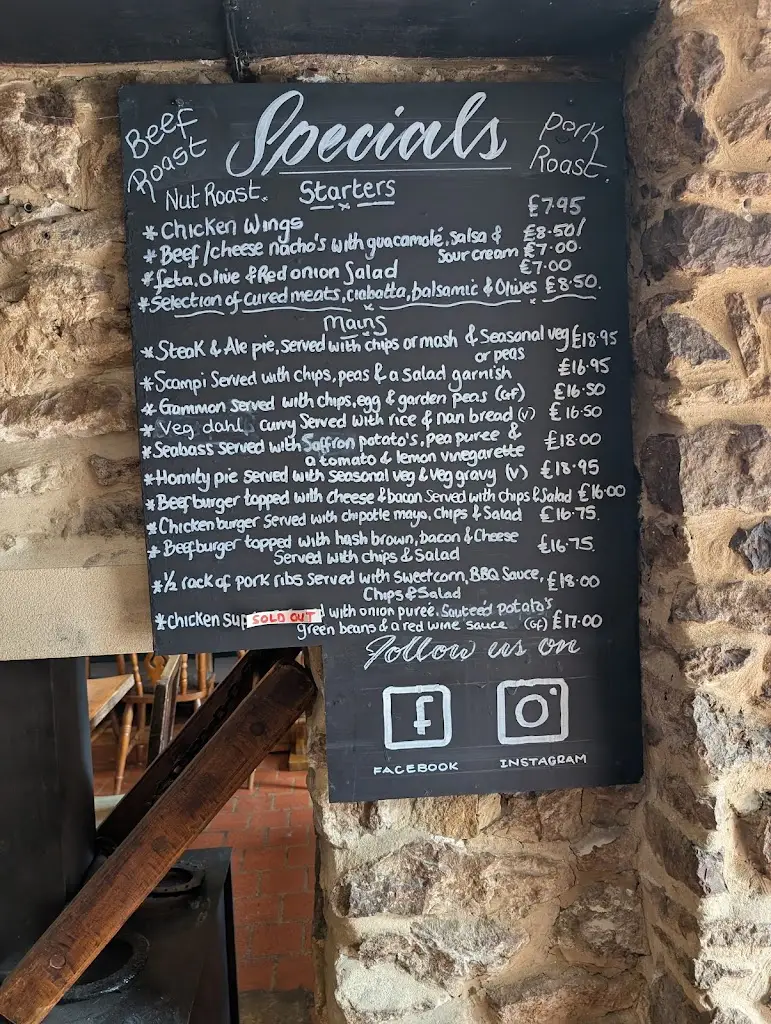 Beef
Roast
Specials
Pork
Roast.
Nut Roast.
Starters
* Chicken Wings £7.95
* Beef/cheese nacho's with guacamolé, Salsa & £8.50/
Sour cream £7.00.
* feta, Olive & Red onion Salad £7.00
* Selection of cured meats, ciabatta, balsamic & Olives £8.50.
Mains
* Steak & Ale pie, Served with chips or mash & Seasonal veg £18.95
or peas
* Scampi Served with chips, peas & a Salad garnish £16.95
* Gammon served with chips, egg & garden peas (GF) £16.50
* Veg dahl curry Served with rice & nan bread (v) £16.50
* Seabass served with Saffron potato's, pea puree & £18.00
a tomato & lemon vinegarette
* Homity pie served with seasonal veg & veg gravy (v) £18.95
* Beefburger topped with cheese & bacon Served with chips & Salad £16.00
* Chicken burger Served with chipotle mayo, Chips & Salad £16.75.
* Beefburger topped with hash brown, bacon & Cheese £16.75.
Served with chips & Salad
* ½ rack of pork ribs Served with Sweetcorn, BBQ Sauce, £18.00
Chips & Salad
* Chicken Sup SOLD OUT with onion pureé, Sauteed potato's
green beans & a red wine sauce (GF) £17.00
Follow us on
f
FACEBOOK
INSTAGRAM